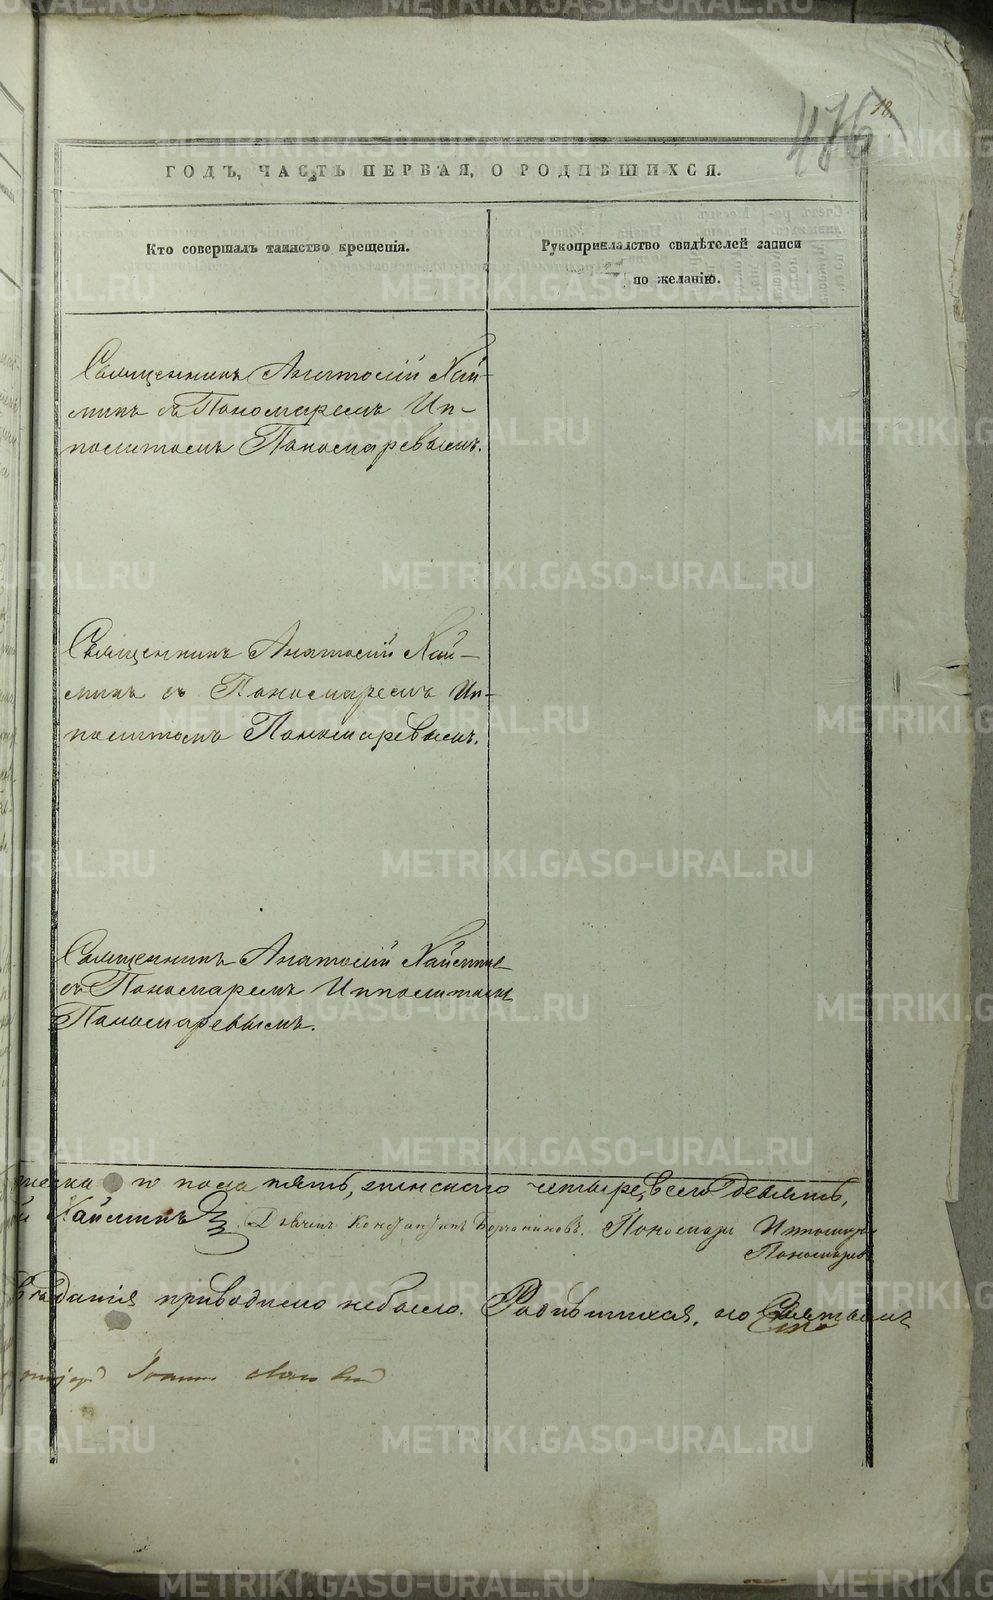 476
18.
ГОДЪ, ЧАСТЬ ПЕРВАЯ, О РОДИВШИХСЯ.
Кто совершалъ таинство крещенія.
Рукоприкладство свидѣтелей записи
по желанію.
Священникъ Анатолій Хай-
минъ съ Пономаремъ Ип-
политомъ Пономаревымъ.
Священникъ Анатолій Хай-
минъ съ Пономаремъ Ип-
политомъ Пономаревымъ.
Священникъ Анатолій Хайминъ
съ Пономаремъ Ипполитомъ
Пономаревымъ.
пола пять, женскаго четыре, всего девять,
Хайминъ Дьячекъ Константинъ Пономарь Ипполитъ
Пономаревъ
приводимо небыло. Родившихся, но
METRIKI.GASO-URAL.RU